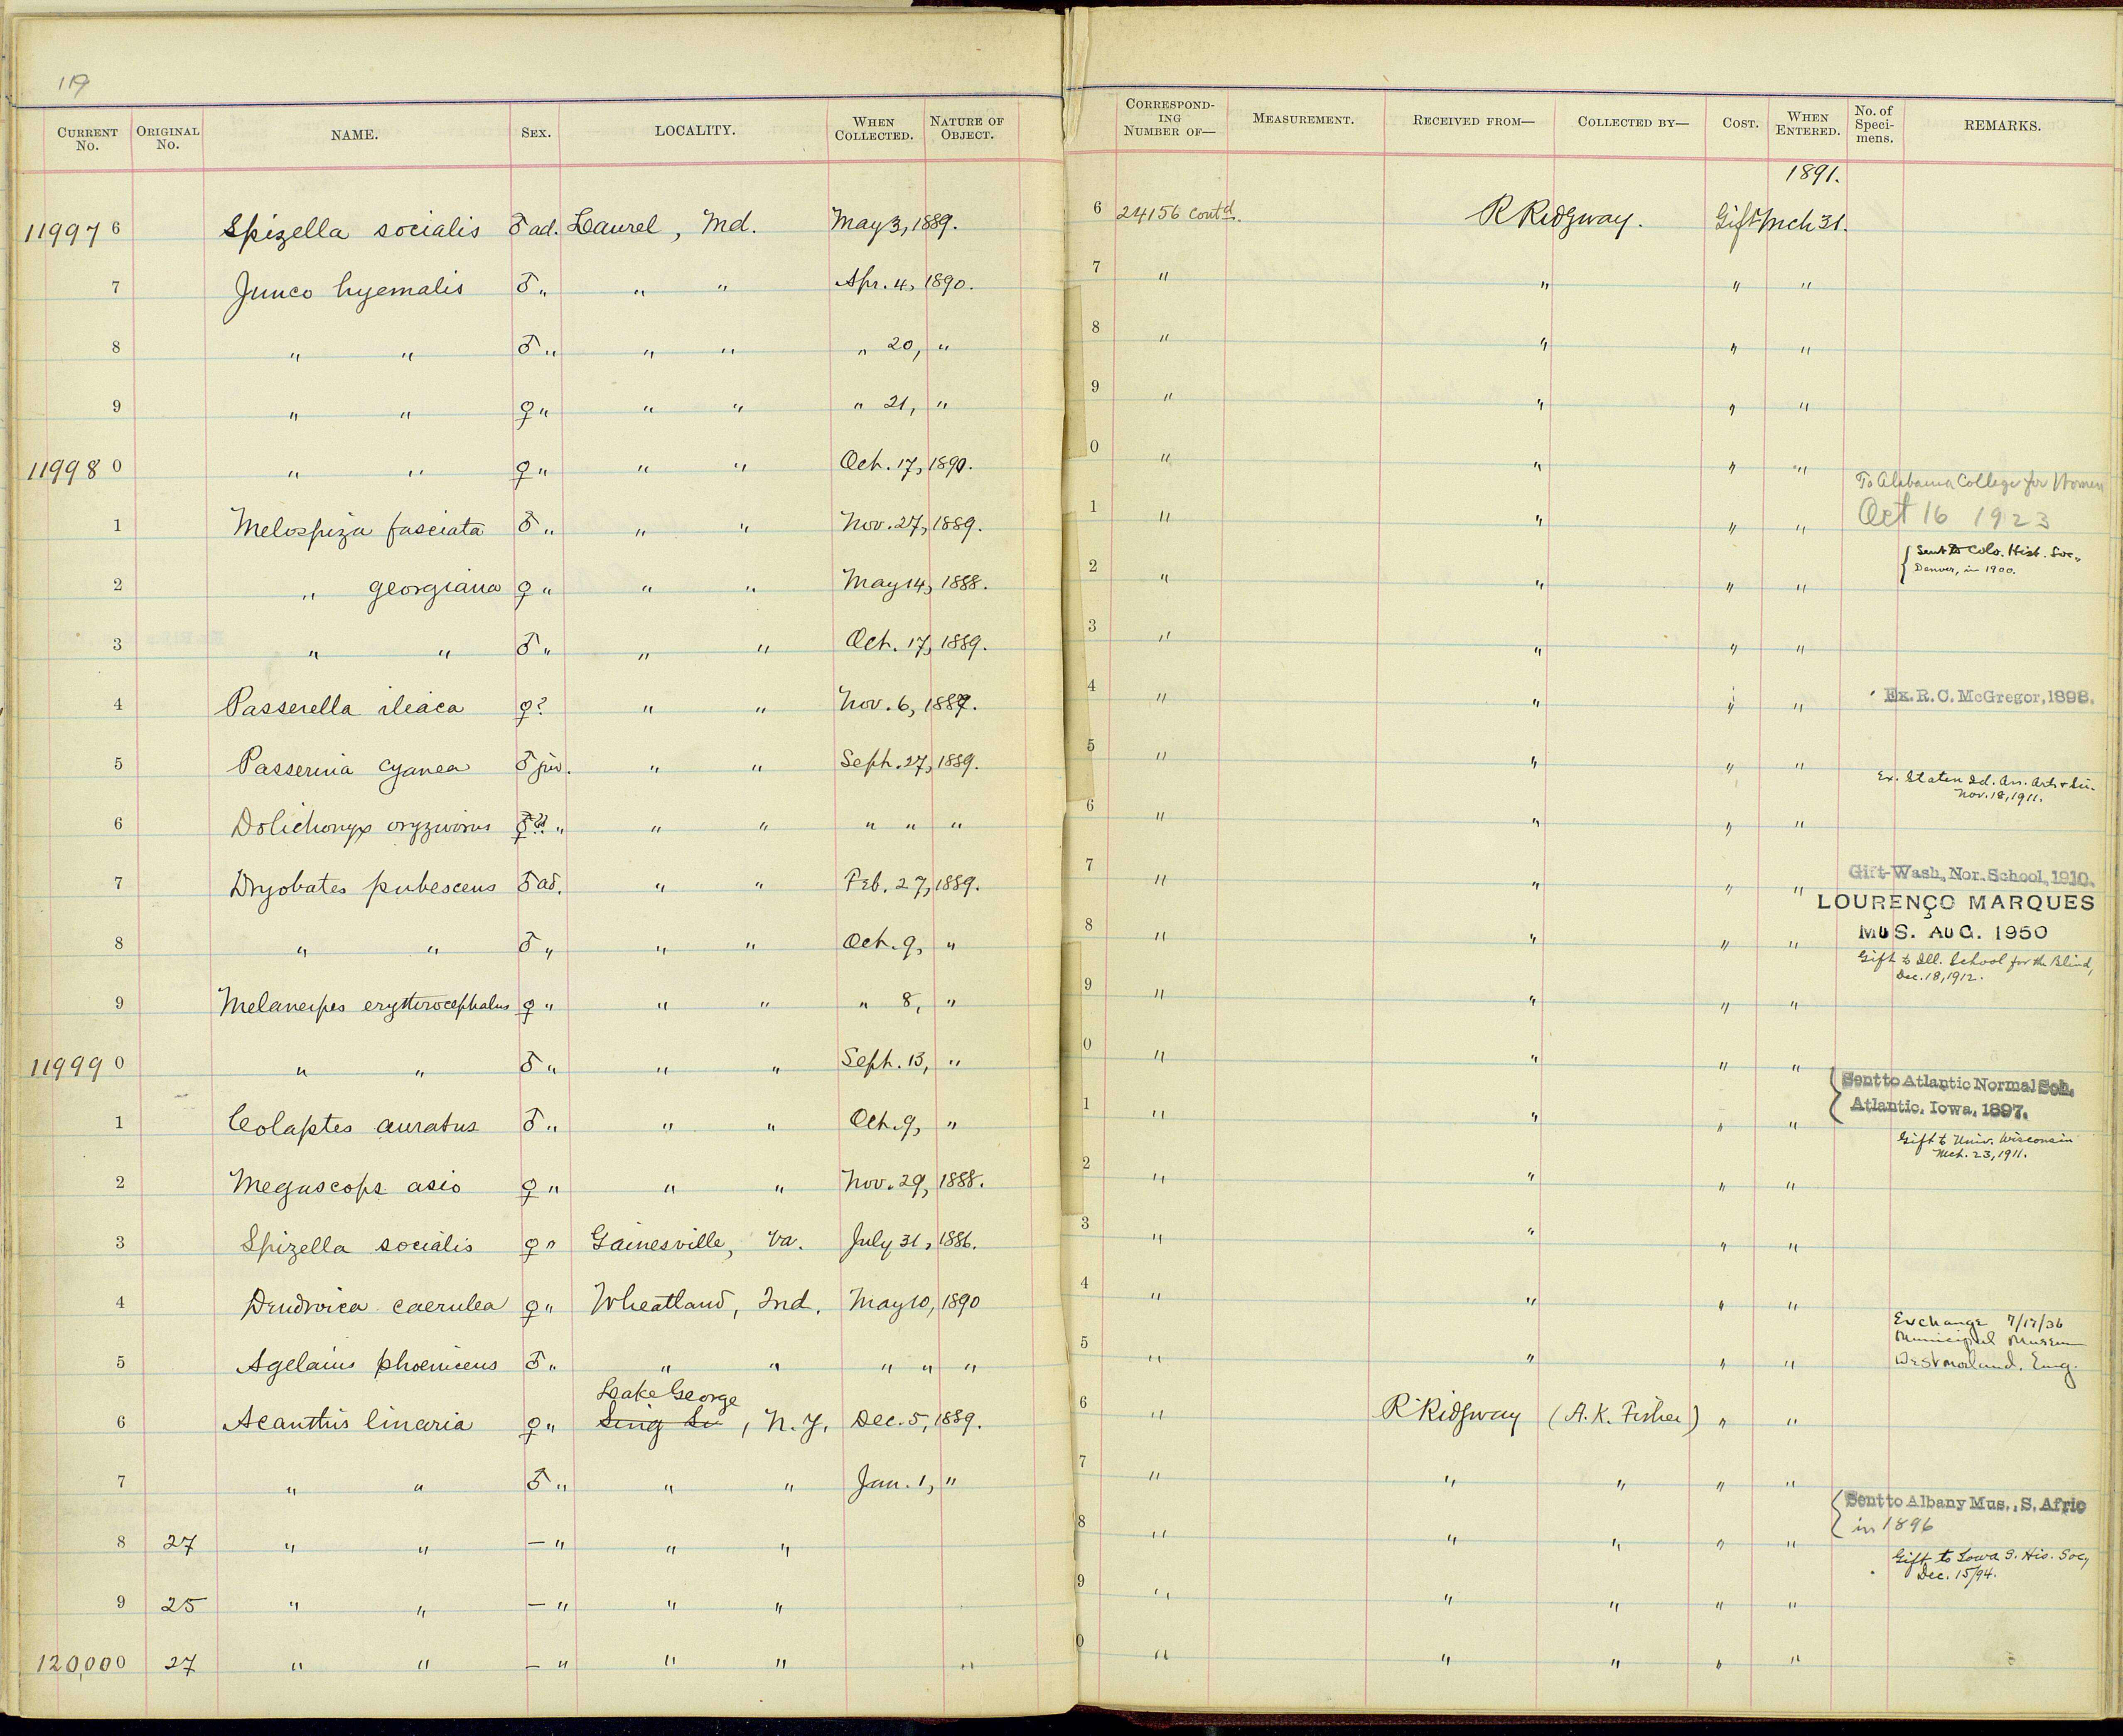 119
CURRENT No. ORIGINAL No. NAME. SEX. LOCALITY. WHEN COLLECTED. NATURE OF OBJECT. CORRESPONDING NUMBER OF— MEASUREMENT. RECEIVED FROM— COLLECTED BY— COST. WHEN ENTERED. No. of Specimens. REMARKS.
1891.
119976 Spizella socialis ♂ ad. Laurel, Md. May 3, 1889. 6 24156 contd. R Ridgway. Gift Mch 31.
7 Junco hyemalis ♂ " " " Apr. 4, 1890. 7 " " " "
8 " " ♂ " " " " 20, " 8 " " " "
9 " " ♀ " " " " 21, " 9 " " " "
119980 " " ♀ " " " Oct. 17, 1890. 0 " " " "
To Alabama College for Women
1 Melospiza fasciata ♂ " " " Nov. 27, 1889. 1 " " " " Oct 16 1923
{ Sent to Colo. Hist. Soc.,
Denver, in 1900.
2 " georgiana ♀ " " " May 14, 1888. 2 " " " "
3 " " ♂ " " " Oct. 17, 1889. 3 " " " "
4 Passerella iliaca ♀? " " Nov. 6, 1889. 4 " " " " Ex. R. C. McGregor, 1898.
5 Passerina cyanea ♂ juv. " " Sept. 27, 1889. 5 " " " "
Ex. Staten Id. Ass. Arts & Sci.
Nov. 18, 1911.
6 Dolichonyx oryzivorus " " " " " " 6 " " " "
7 Dryobates pubescens ♂ ad. " " Feb. 27, 1889. 7 " " " " Gift-Wash. Nor. School, 1910.
LOURENÇO MARQUES
8 " " ♂ " " " Oct. 9, " 8 " " " " MUS. AUG. 1950
Gift to Ill. School for the Blind,
Dec. 18, 1912.
9 Melanerpes erythrocephalus ♀ " " " " 8, " 9 " " " "
119990 " " ♂ " " " Sept. 13, " 0 " " " "
{ Sent to Atlantic Normal Sch.
Atlantic, Iowa, 1897.
1 Colaptes auratus ♂ " " " Oct. 9, " 1 " " " "
Gift to Univ. Wisconsin
Mch. 23, 1911.
2 Megascops asio ♀ " " " Nov. 29, 1888. 2 " " " "
3 Spizella socialis ♀ " Gainesville, Va. July 31, 1886. 3 " " " "
4 Dendroica caerulea ♀ " Wheatland, Ind. May 10, 1890 4 " " " "
Exchange 7/17/36
Municipal Museum
5 Agelaius phoeniceus ♂ " " " " " " 5 " " " " Westmorland. Eng.
Lake George
6 Acanthis linaria ♀ " Sing Si, N.Y. Dec. 5, 1889. 6 " R Ridgway (A. K. Fisher) " "
7 " " ♂ " " " Jan. 1, " 7 " " " " "
{ Sent to Albany Mus., S. Afric
in 1896
8 27 " " — " " " 8 " " " " "
Gift to Iowa S. His. Soc,
Dec. 15/94.
9 25 " " — " " " 9 " " " " "
120,000 27 " " — " " " " 0 " " " " "